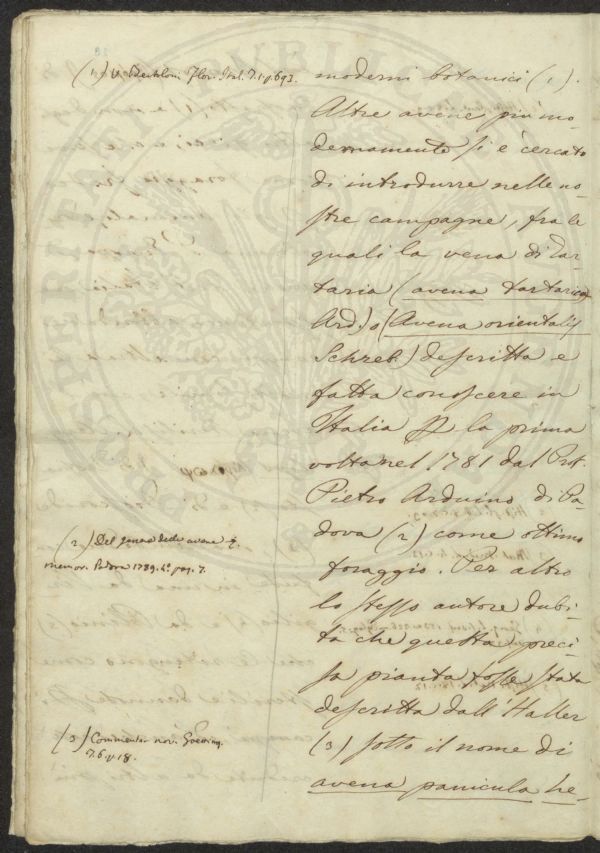 (1) V. Bertoloni Flor. Ital. T. 1. p. 693.
moderni botanici (1).
Altre avene più mo-
dernamente si è cercato
di introdurre nelle no-
stre campagne, fra le
quali la vena di Tar-
taria (avena tartarica
Ard.) o (Avena orientalis
Schreb.) descritta e
fatta conoscere in
Italia la prima
volta nel 1781 dal Prof.
Pietro Arduino di Pa-
dova (2) come ottimo
foraggio. Per altro
lo stesso autore dubi-
ta che questa preci-
sa pianta fosse stata
descritta dall'Haller
(3) sotto il nome di
avena panicula he-
(2) Del genere delle avene
memor. Padova 1789. 4.° pag. 7.
(3) Commentar. nov. Goetting.
T. 6. p. 18.